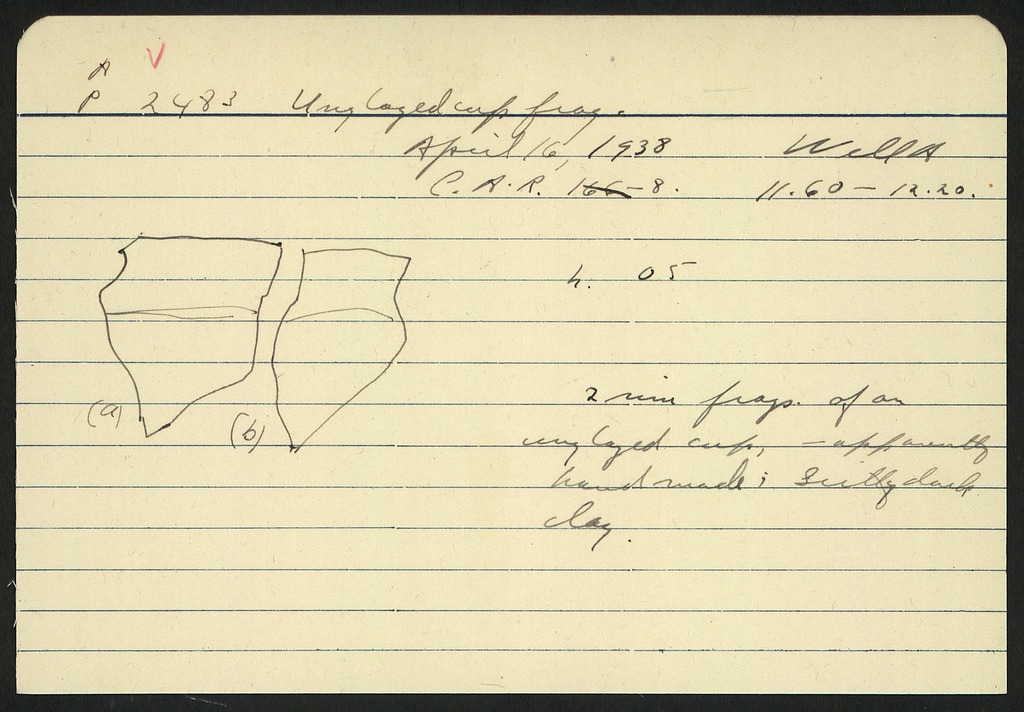 A V
P 2483 Unglazed cup frag.
April 16, 1938 Well A
C.A.R. 166-8. 11.60 – 12.20.
h. 05
(a) (b)
2 rim frags. of an
unglazed cup, – apparently
hand made; gritty dark
clay.